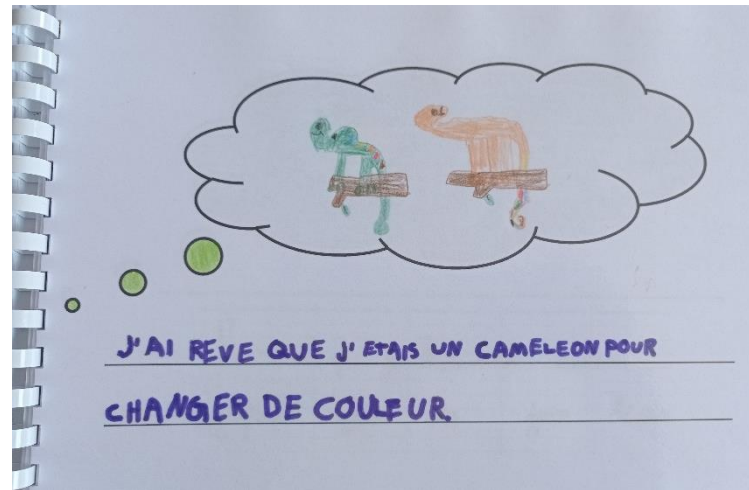 J'AI REVE QUE J'ETAIS UN CAMELEON POUR
CHANGER DE COULEUR.